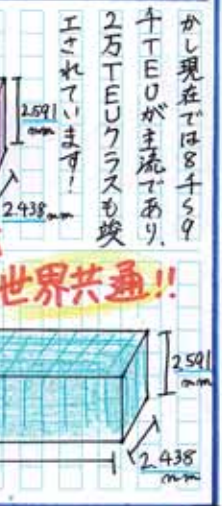 かし現在では8千〜9
千TEUが主流であり、
2万TEUクラスも竣
工されています!
2.591
mm
2.438
mm
世界共通!!
2.591
mm
2.438
mm